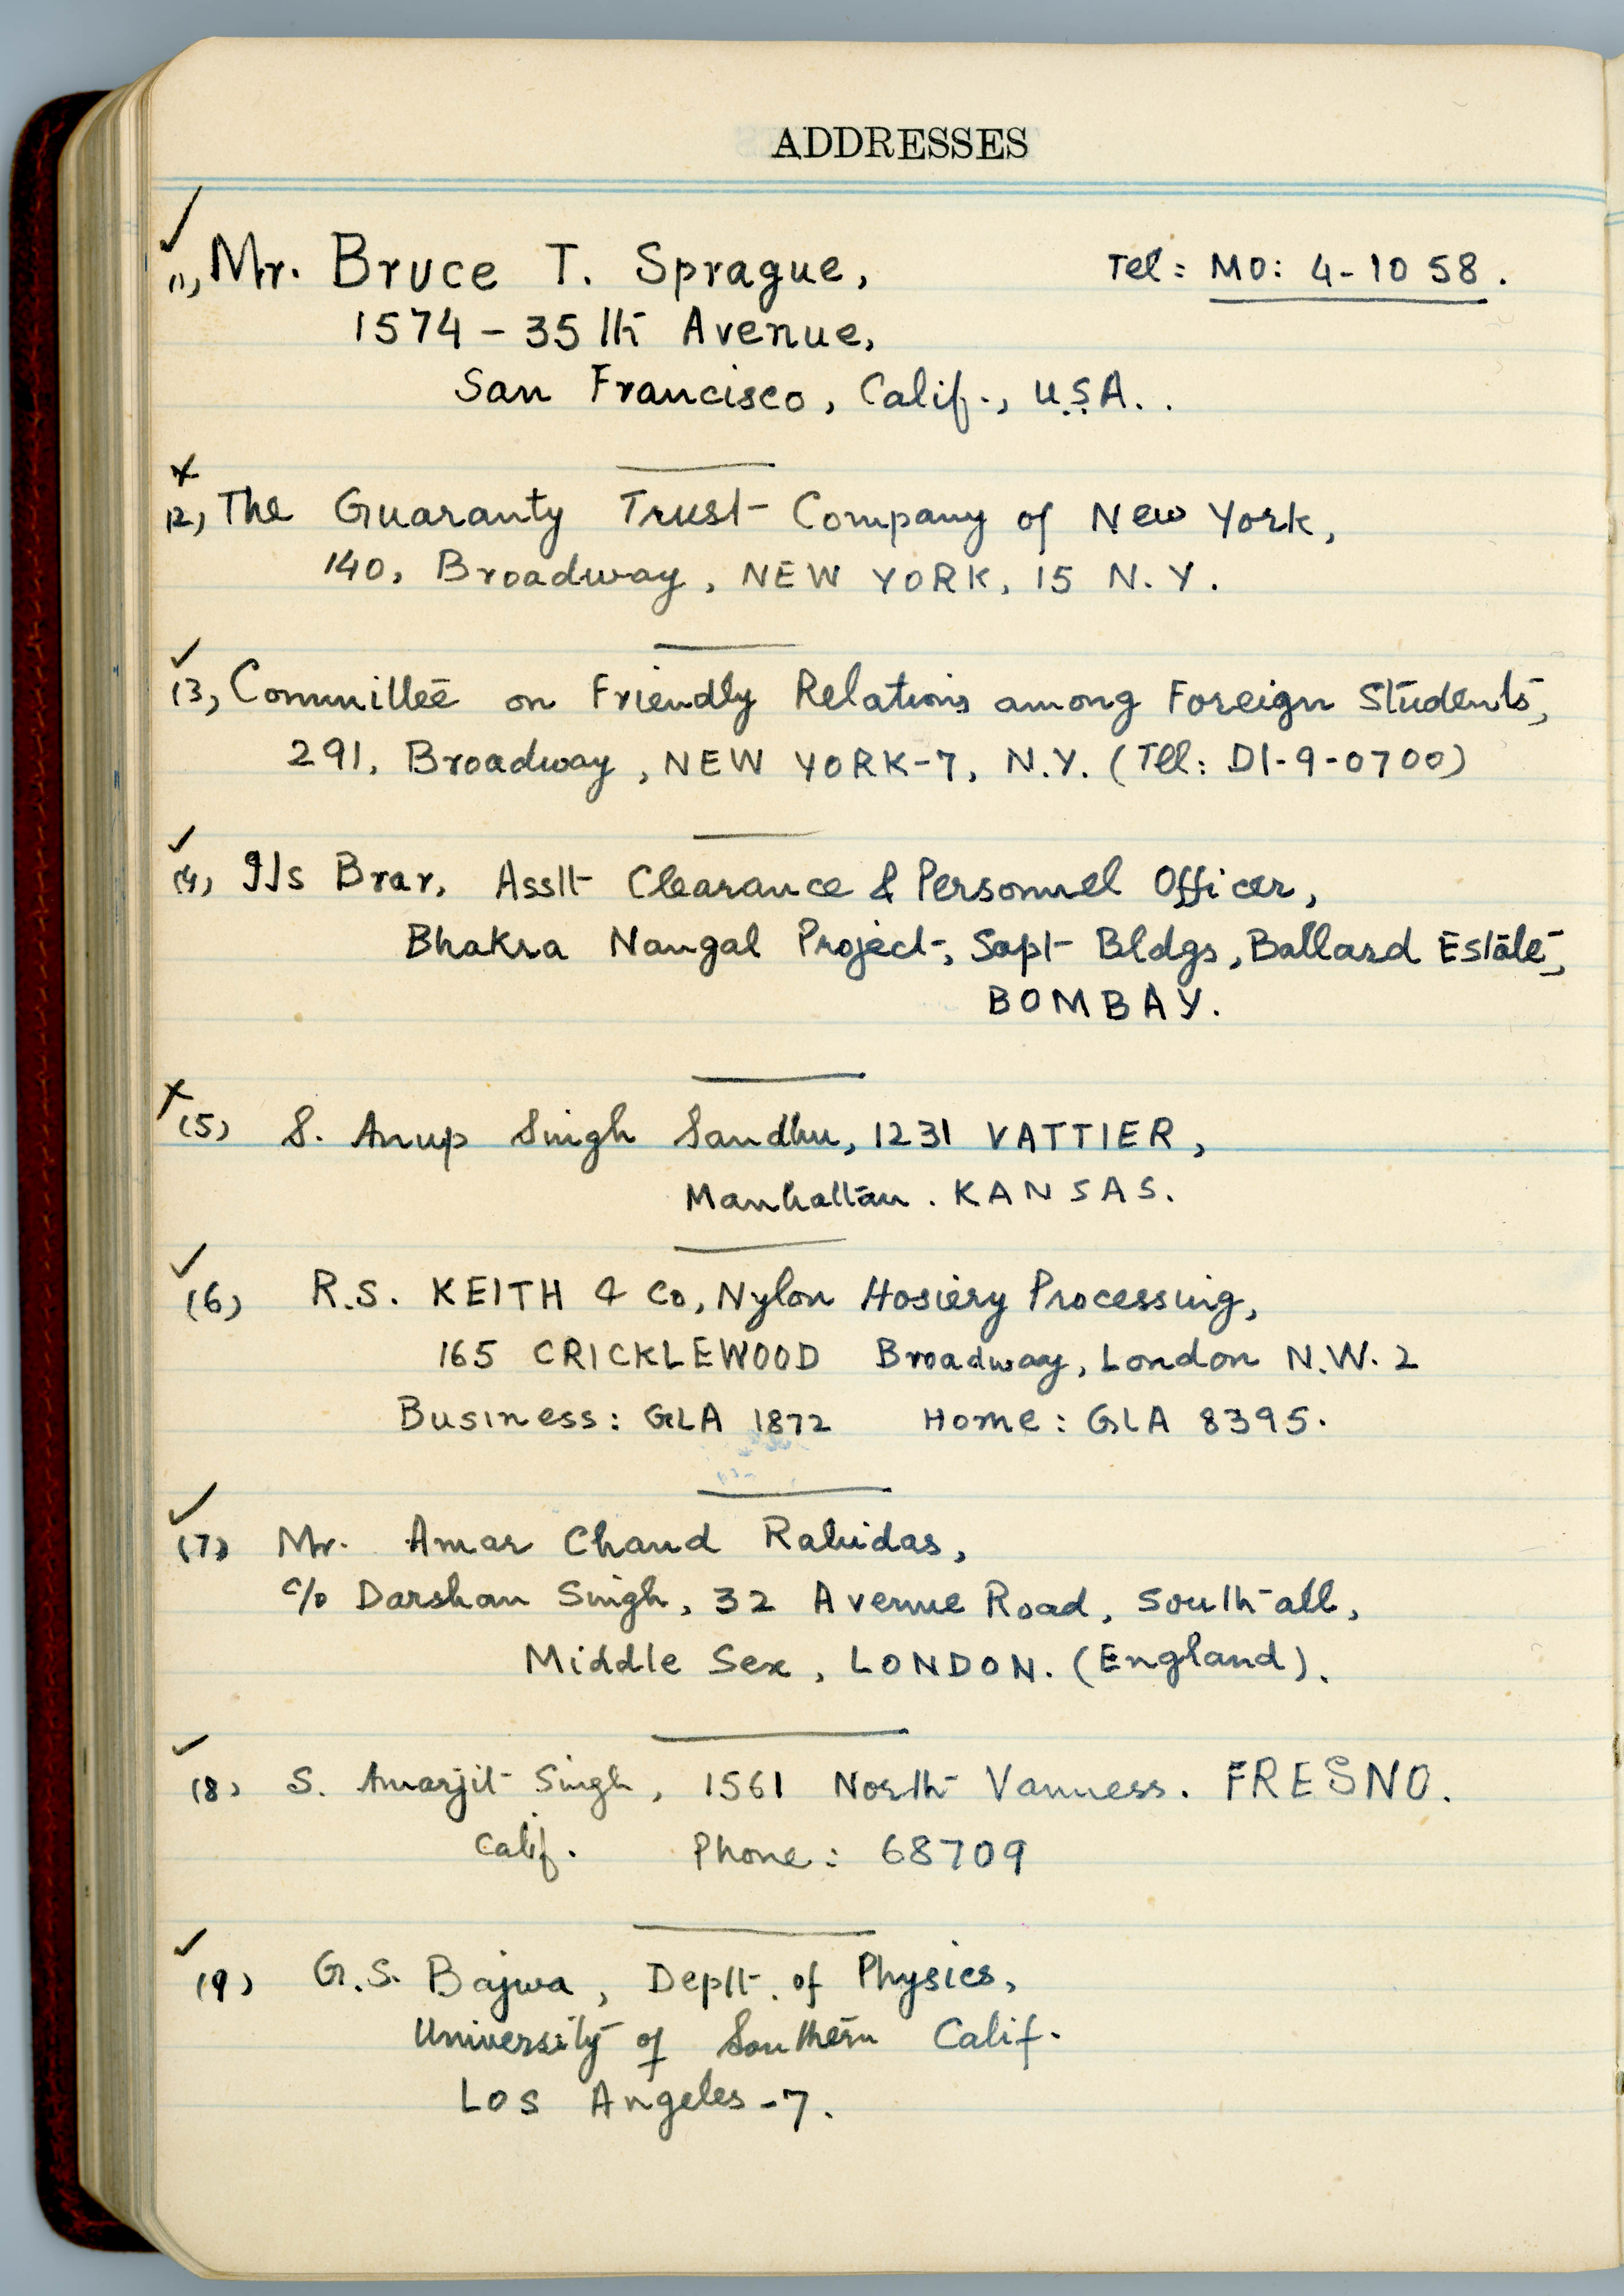 ADDRESSES
(1) Mr. Bruce T. Sprague, Tel: MO: 4-1058.
1574-35th Avenue,
San Francisco, Calif., U.S.A..
(2) The Guaranty Trust Company of New York,
140, Broadway, NEW YORK, 15 N.Y.
(3) Committee on Friendly Relations among Foreign Students,
291, Broadway, NEW YORK-7, N.Y. (Tel: DI-9-0700)
(4) Brar, Asstt Clearance & Personnel Officer,
Bhakra Nangal Project, Bldgs, Ballard Estate,
BOMBAY.
(5) S. Anup Singh Sandhu, 1231 VATTIER,
Manhattan. KANSAS.
(6) R.S. KEITH & Co, Nylon Hosiery Processing,
165 CRICKLEWOOD Broadway, London N.W. 2
Business: GLA 1872 Home: GLA 8395.
(7) Mr. Amar Chand Rabidas,
c/o Darshan Singh, 32 Avenue Road, South-all,
Middle Sex, LONDON. (England).
(8) S. Amarjit Singh, 1561 North Vanness. FRESNO.
Calif. Phone: 68709
(9) G.S. Bajwa, Deptt. of Physics,
University of Southern Calif.
Los Angeles-7.